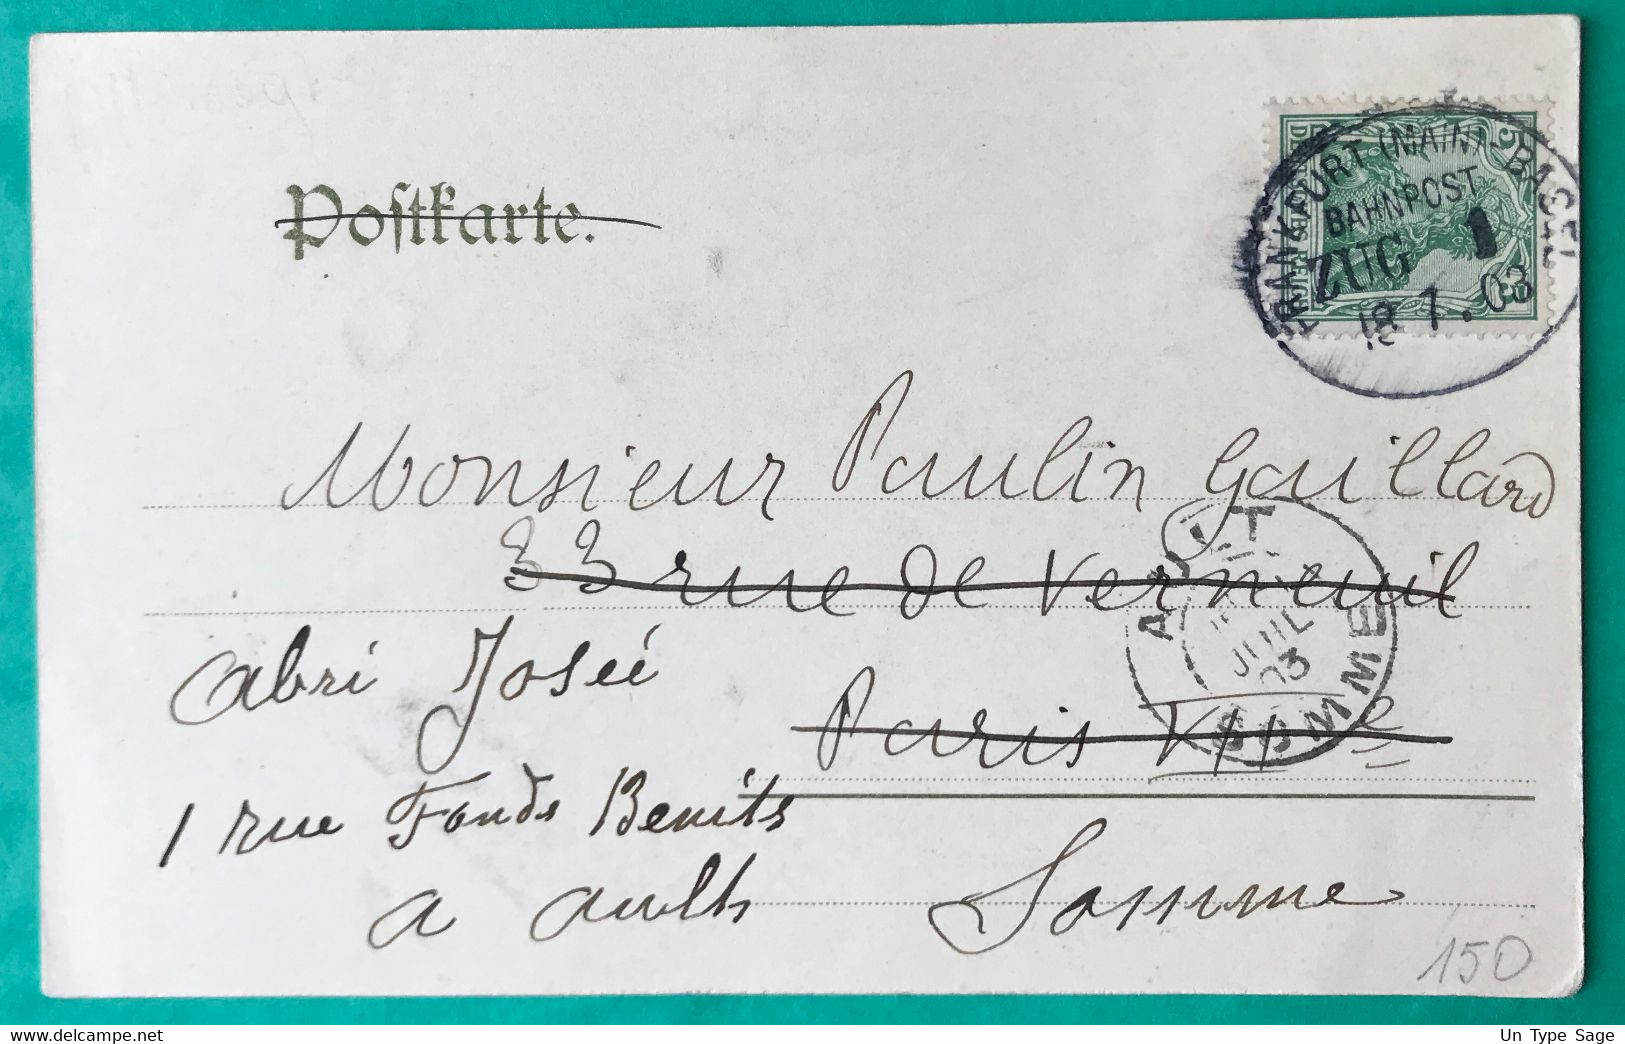 Postkarte.
FRANKFURT (MAIN)-BASEL
BAHNPOST
ZUG 1
18 7.03
5
Monsieur Paulin Gaillard
33 rue de Verneuil
Paris VIIe
AULT
JUIL
03
SOMME
abri Joseé
1 rue Fonds Benits
a aulth Somme
150
www.delcampe.net
Un Type Sage